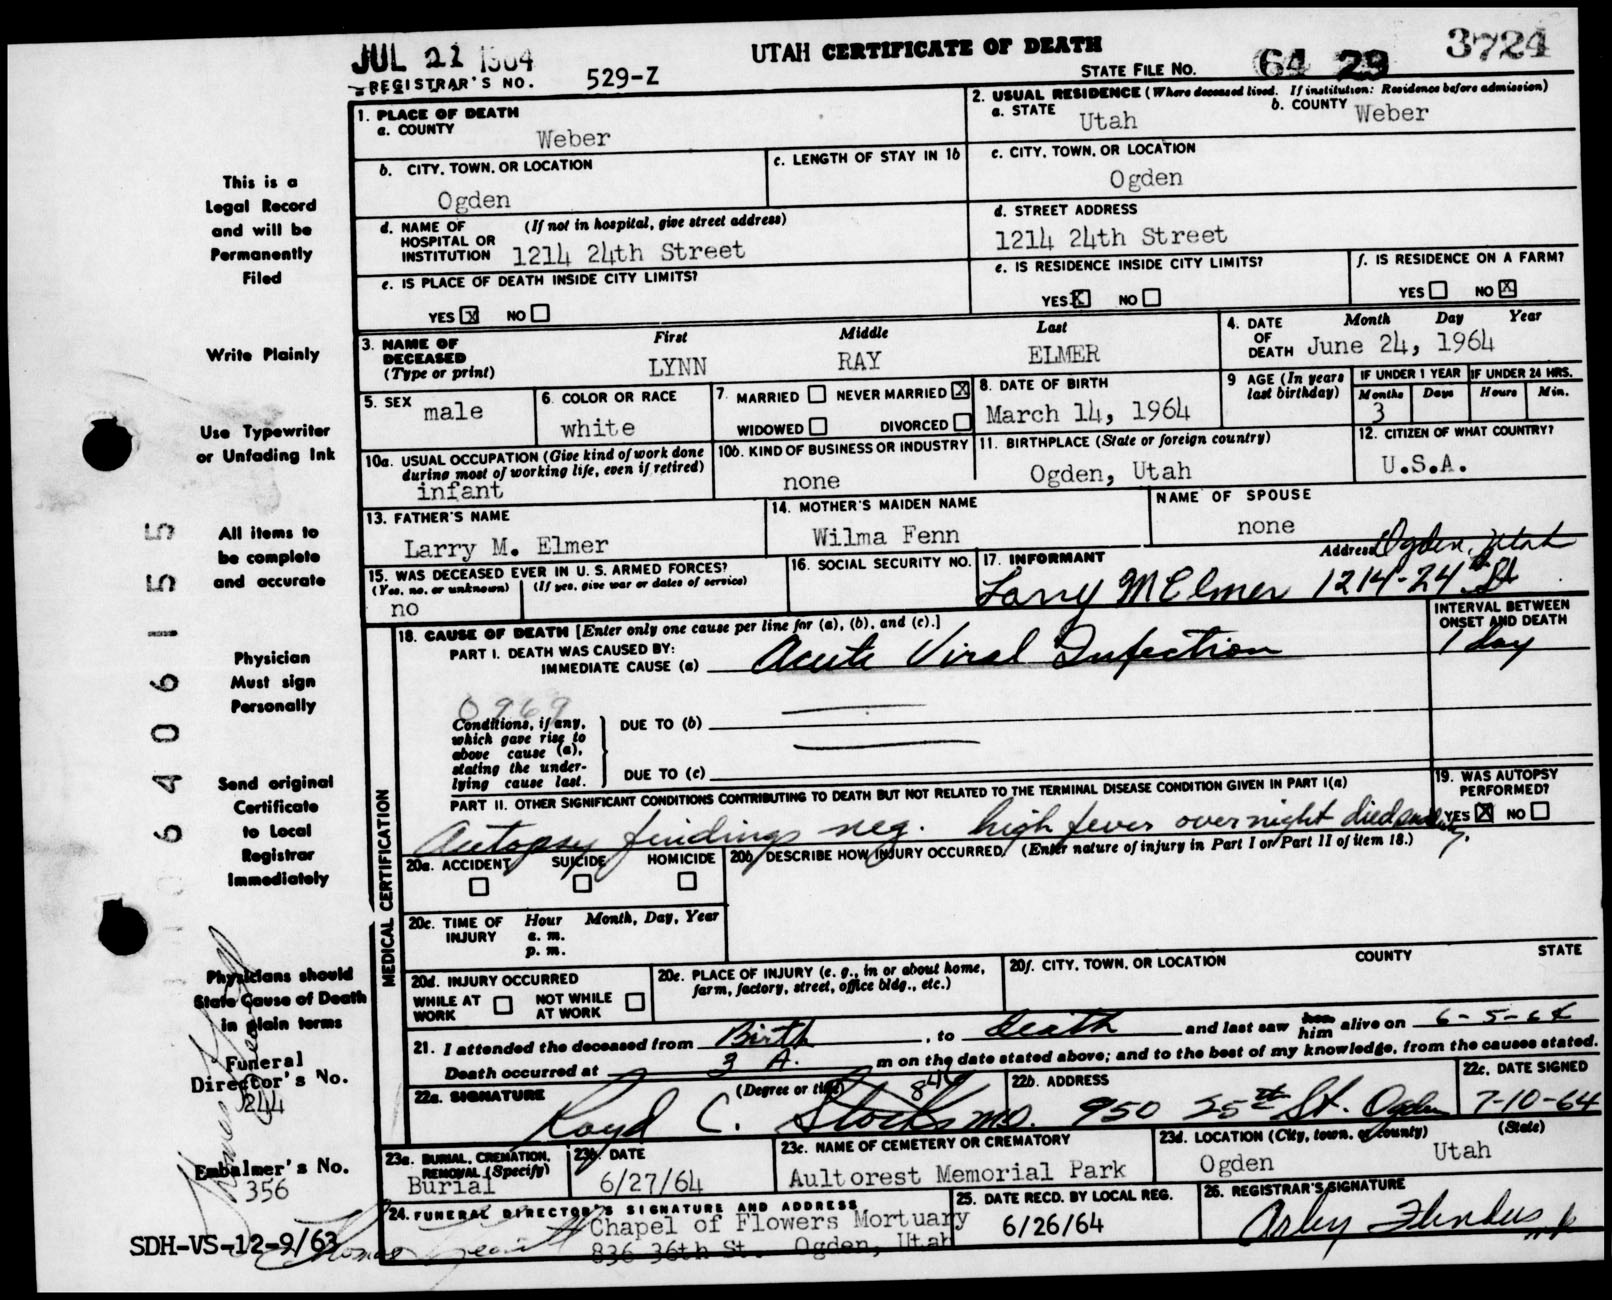 JUL 21 1964
REGISTRAR'S NO. 529-Z
UTAH CERTIFICATE OF DEATH
STATE FILE NO. 64 29 3724
1. PLACE OF DEATH
a. COUNTY Weber
2. USUAL RESIDENCE (Where deceased lived. If institution: Residence before admission)
a. STATE Utah
b. COUNTY Weber
b. CITY, TOWN, OR LOCATION
Ogden
c. LENGTH OF STAY IN 1b
c. CITY, TOWN, OR LOCATION
Ogden
d. NAME OF HOSPITAL OR INSTITUTION (If not in hospital, give street address)
1214 24th Street
d. STREET ADDRESS
1214 24th Street
e. IS PLACE OF DEATH INSIDE CITY LIMITS?
YES X NO
e. IS RESIDENCE INSIDE CITY LIMITS?
YES X NO
f. IS RESIDENCE ON A FARM?
YES NO X
3. NAME OF DECEASED (Type or print)
First Middle Last
LYNN RAY ELMER
4. DATE OF DEATH Month Day Year
June 24, 1964
5. SEX male
6. COLOR OR RACE
white
7. MARRIED NEVER MARRIED X
WIDOWED DIVORCED
8. DATE OF BIRTH
March 14, 1964
9 AGE (In years last birthday)
IF UNDER 1 YEAR IF UNDER 24 HRS.
Months Days Hours Min.
3
10a. USUAL OCCUPATION (Give kind of work done during most of working life, even if retired)
infant
10b. KIND OF BUSINESS OR INDUSTRY
none
11. BIRTHPLACE (State or foreign country)
Ogden, Utah
12. CITIZEN OF WHAT COUNTRY?
U.S.A.
13. FATHER'S NAME
Larry M. Elmer
14. MOTHER'S MAIDEN NAME
Wilma Fenn
NAME OF SPOUSE
none
15. WAS DECEASED EVER IN U. S. ARMED FORCES?
(Yes, no, or unknown) (If yes, give war or dates of service)
no
16. SOCIAL SECURITY NO.
17. INFORMANT Address Ogden, Utah
Larry M Elmer 1214-24th St
18. CAUSE OF DEATH [Enter only one cause per line for (a), (b), and (c).]
INTERVAL BETWEEN ONSET AND DEATH
PART I. DEATH WAS CAUSED BY:
IMMEDIATE CAUSE (a) Acute Viral Infection 1 day
0969
Conditions, if any, which gave rise to above cause (a), stating the underlying cause last.
DUE TO (b)
DUE TO (c)
PART II. OTHER SIGNIFICANT CONDITIONS CONTRIBUTING TO DEATH BUT NOT RELATED TO THE TERMINAL DISEASE CONDITION GIVEN IN PART I(a)
Autopsy findings neg. high fever overnight died suddenly.
19. WAS AUTOPSY PERFORMED?
YES X NO
20a. ACCIDENT SUICIDE HOMICIDE
20b. DESCRIBE HOW INJURY OCCURRED (Enter nature of injury in Part I or Part II of item 18.)
20c. TIME OF INJURY Hour Month, Day, Year
a. m.
p. m.
20d. INJURY OCCURRED
WHILE AT WORK NOT WHILE AT WORK
20e. PLACE OF INJURY (e. g., in or about home, farm, factory, street, office bldg., etc.)
20f. CITY, TOWN, OR LOCATION COUNTY STATE
21. I attended the deceased from Birth, to death and last saw her him alive on 6-5-64
Death occurred at 3 A. m on the date stated above; and to the best of my knowledge, from the causes stated.
22a. SIGNATURE (Degree or title)
Royd C. Stocks M.D.
22b. ADDRESS
950 25th St. Ogden
22c. DATE SIGNED
7-10-64
23a. BURIAL, CREMATION, REMOVAL (Specify)
Burial
23b. DATE
6/27/64
23c. NAME OF CEMETERY OR CREMATORY
Aultorest Memorial Park
23d. LOCATION (City, town, or county) (State)
Ogden Utah
24. FUNERAL DIRECTOR'S SIGNATURE AND ADDRESS
Chapel of Flowers Mortuary
836 36th St. Ogden, Utah
25. DATE RECD. BY LOCAL REG.
6/26/64
26. REGISTRAR'S SIGNATURE
MEDICAL CERTIFICATION
This is a
Legal Record
and will be
Permanently
Filed
Write Plainly
Use Typewriter
or Unfading Ink
All items to
be complete
and accurate
Physician
Must sign
Personally
Send original
Certificate
to Local
Registrar
Immediately
Physicians should
State Cause of Death
in plain terms
Funeral
Director's No.
244
Embalmer's No.
356
SDH-VS-12-9/63
64061555